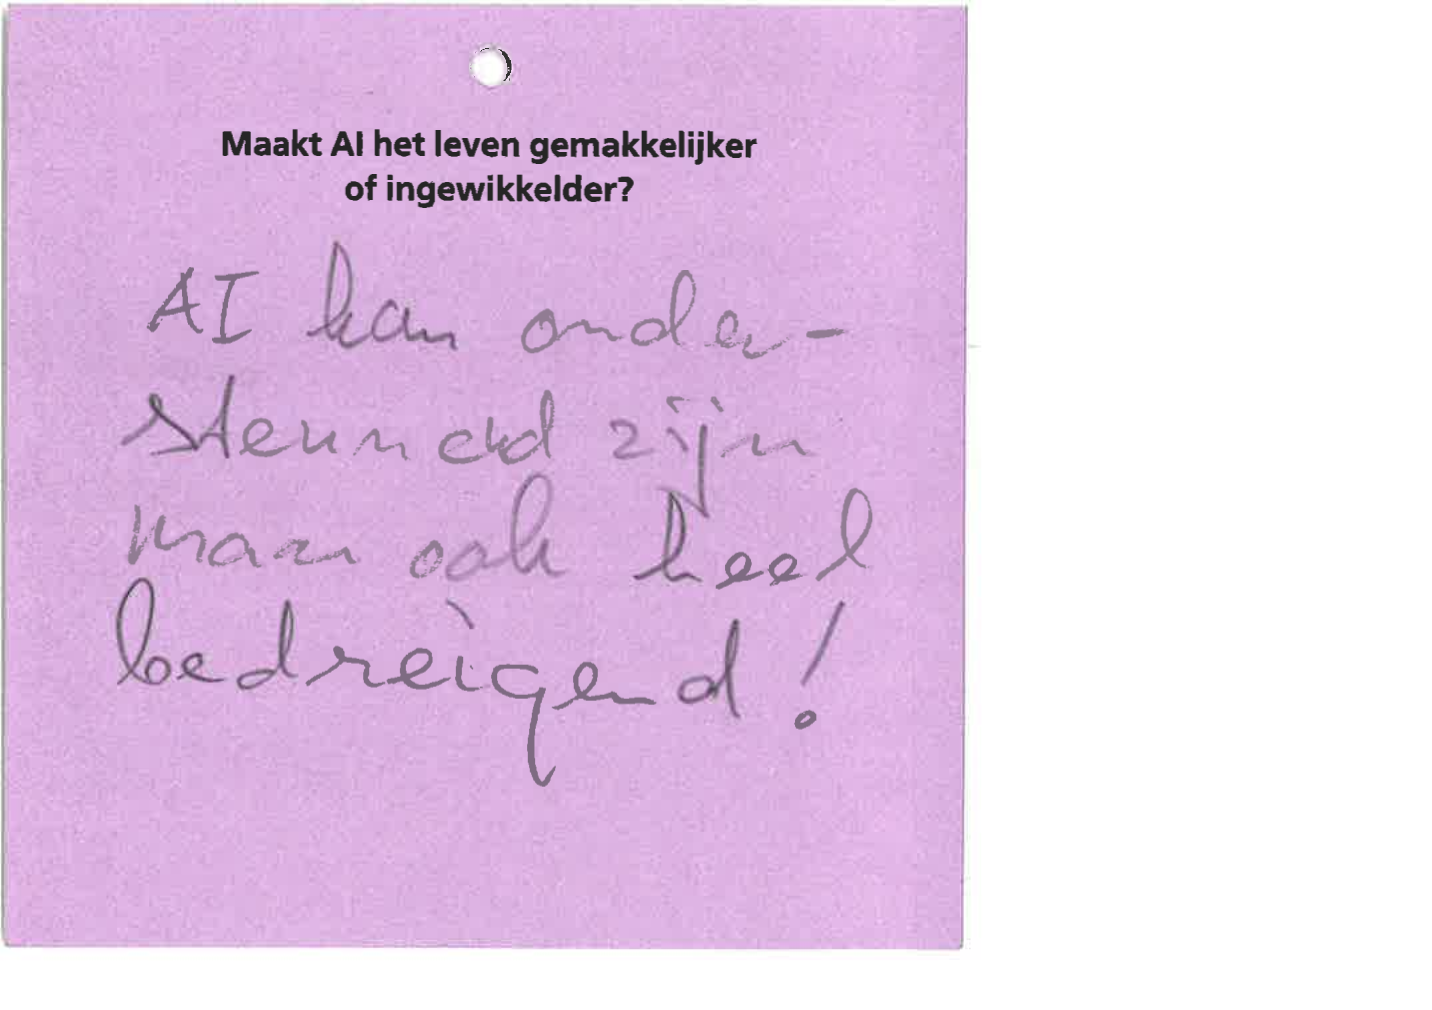 Maakt AI het leven gemakkelijker
of ingewikkelder?
AI kan onder-
steunend zijn
maar ook heel
bedreigend!